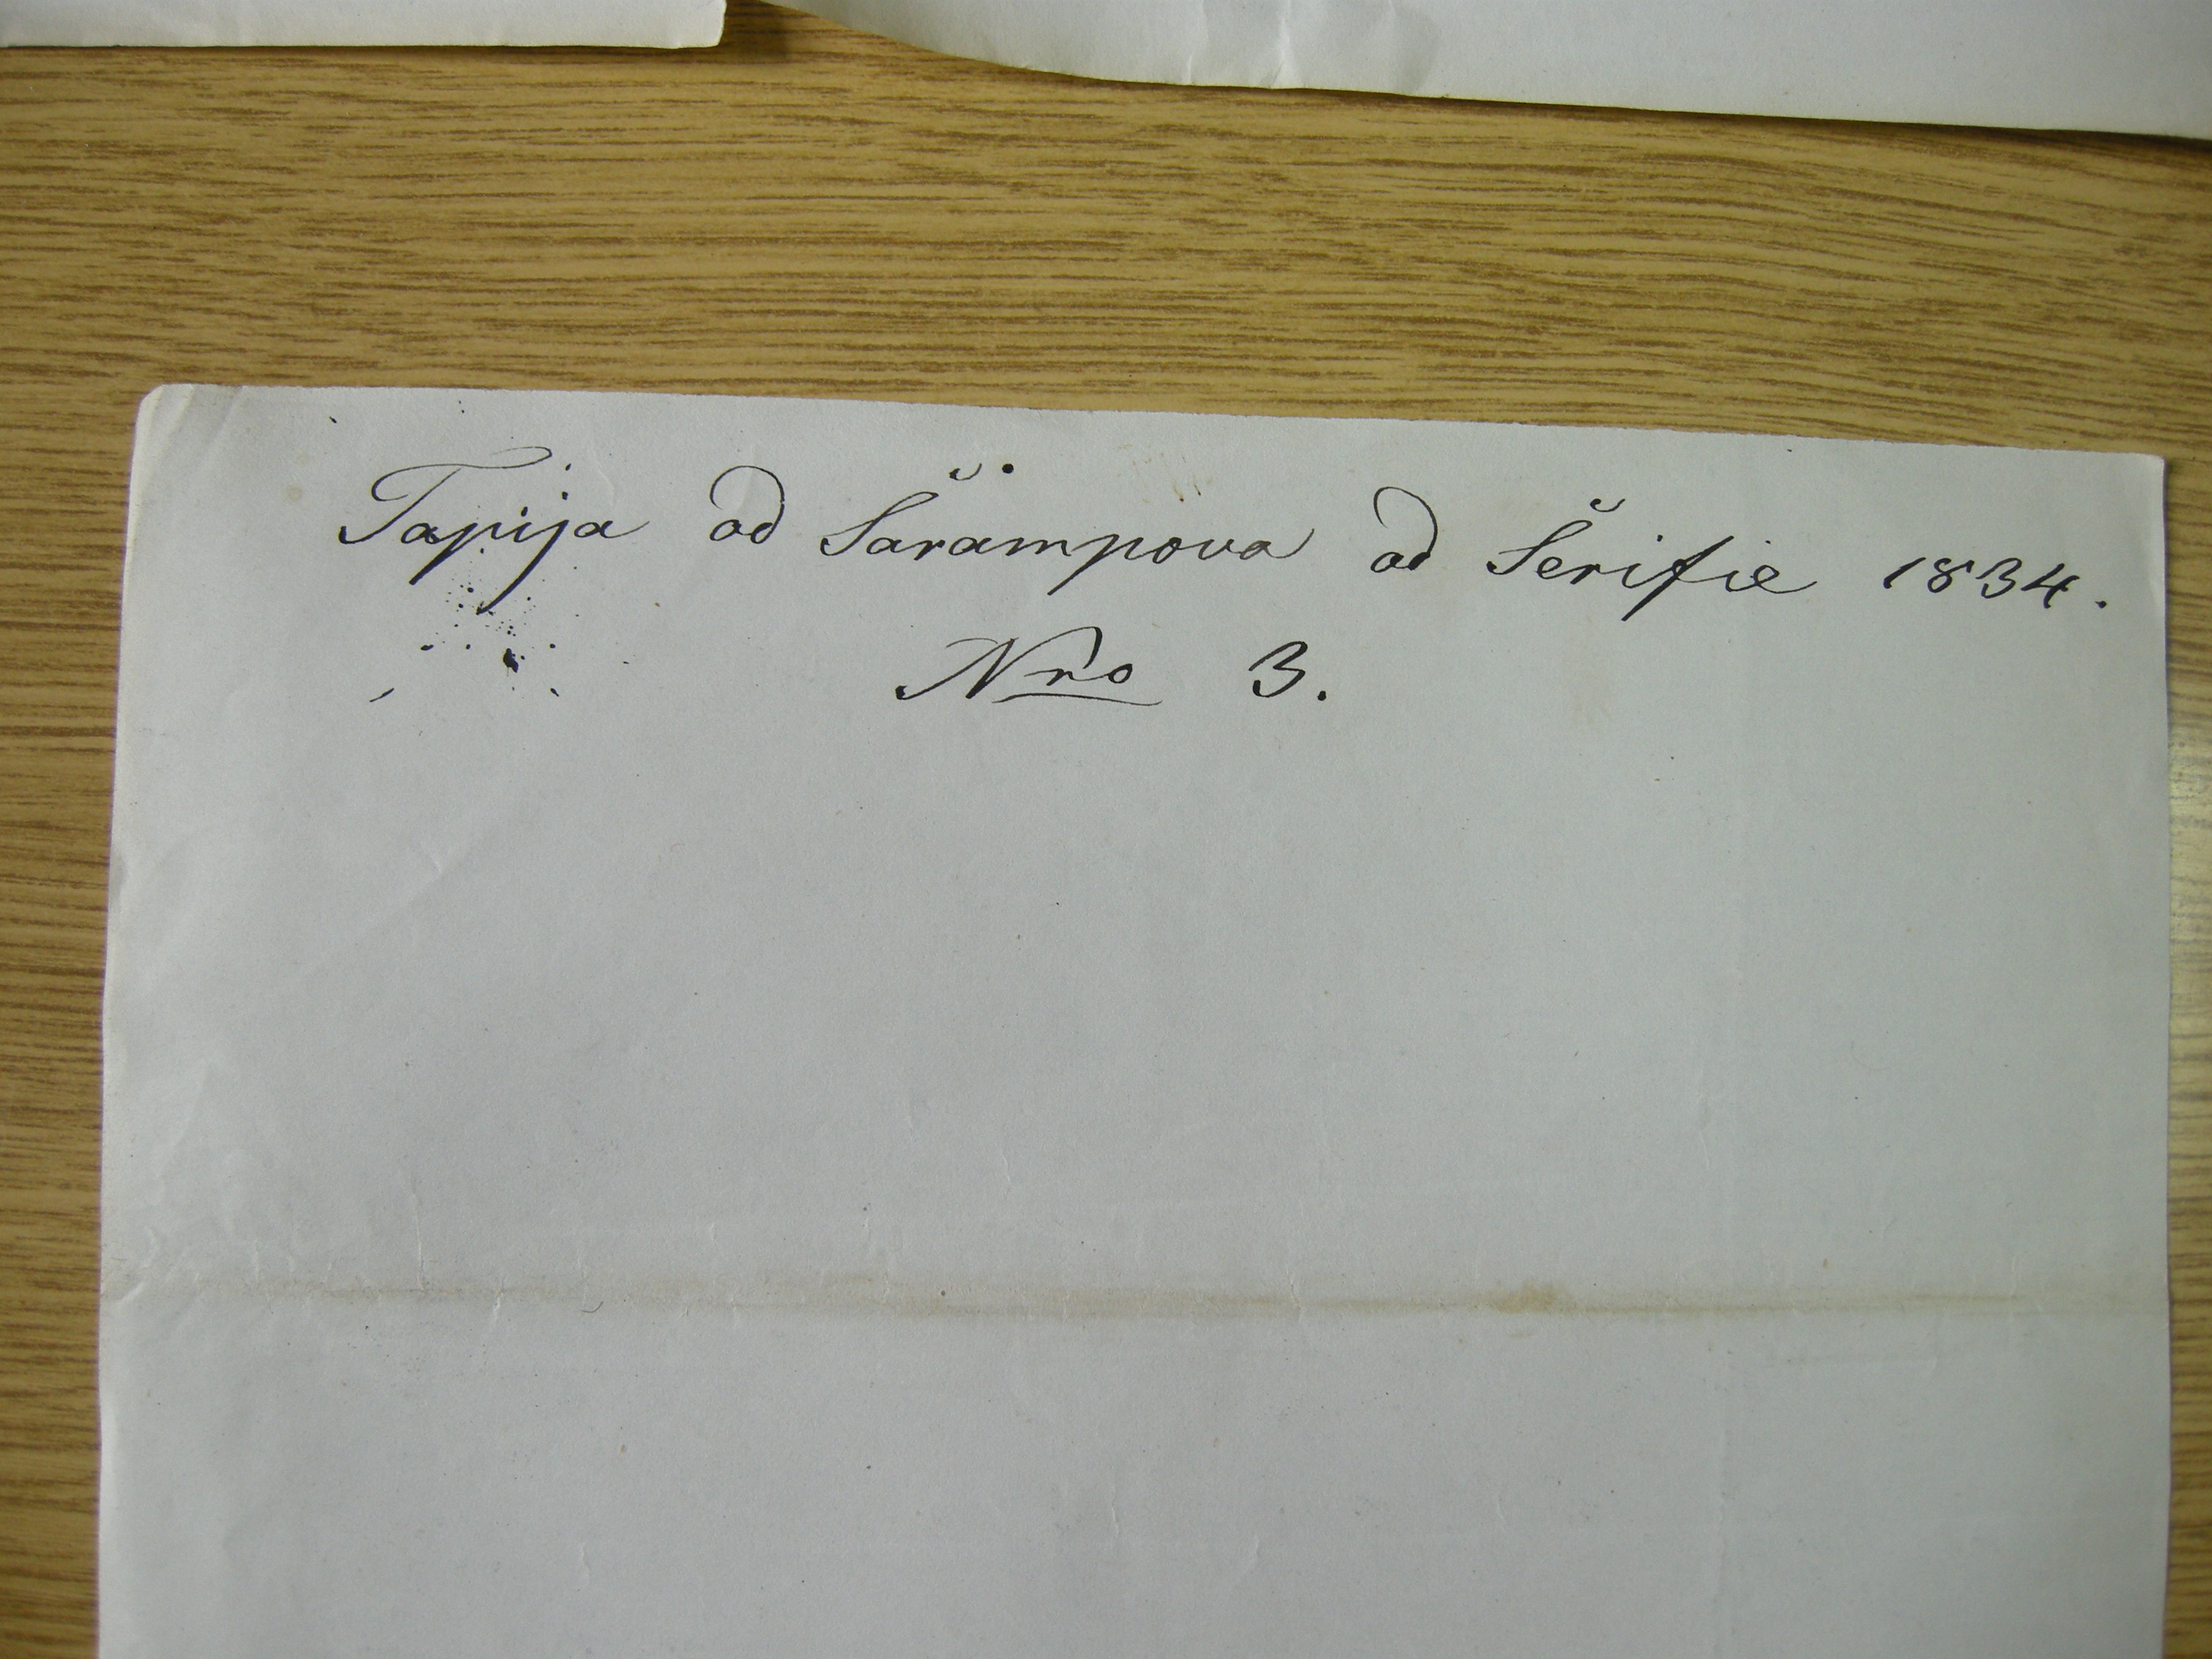 Tapija od Šarampova od Šerifie 1834.
Nro 3.